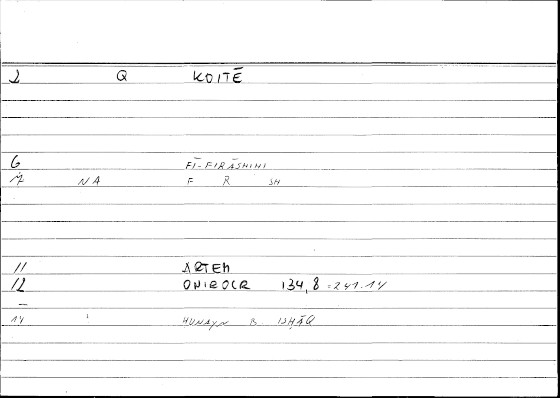 1 Q KOITĒ
6 FĪ-FIRĀSHIHI
7 NA F R SH
11 ARTEM
12 ONIROCR 134,8 = 241.14
–
14 ḤUNAYN B. ISḤĀQ